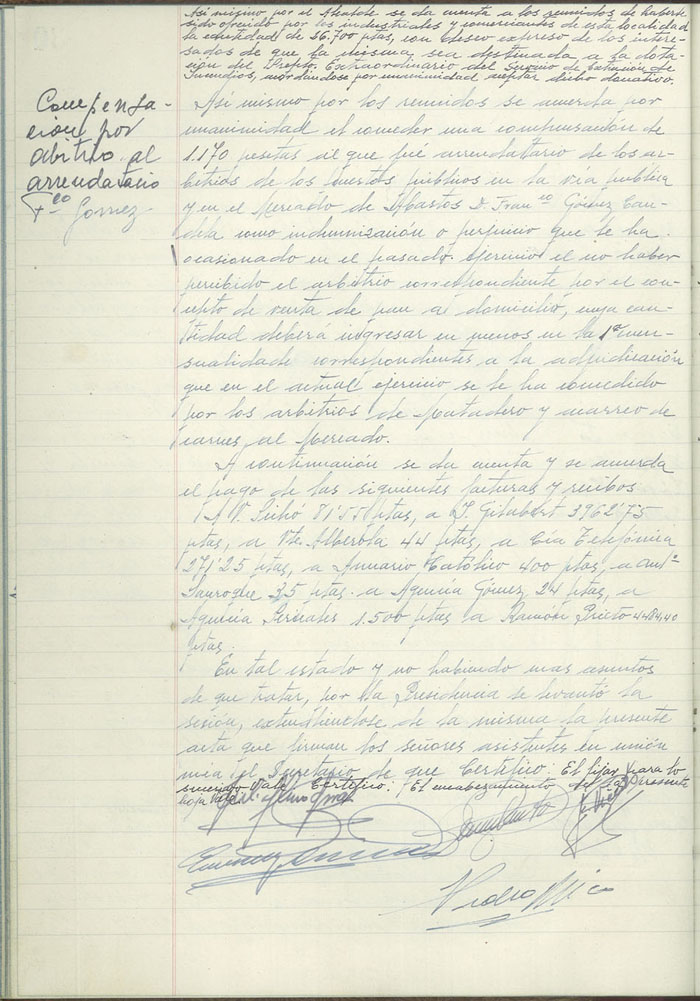 Así mismo por el Alcalde se da cuenta a los reunidos de haberse
sido ofrecido por los industriales y comerciantes de esta localidad
la cantidad de 56.700 ptas, con deseo expreso de los intere-
sados de que la misma sea destinada a la dota-
ción del Ppto. Extraordinario del Servicio de Extinción de
Incendios, acordándose por unanimidad aceptar dicho donativo.
Compensa-
ción por
abitrio al
arrendatario
Fco Gomez
Así mismo por los reunidos se acuerda por
unanimidad el conceder una compensación de
1.170 pesetas al que fué arrendatario de los ar-
bitrios de los puestos públicos en la via publica
y en el Mercado de Abastos D. Franco Gómez Can-
dela como indemnización o perjuicio que le ha
ocasionado en el pasado ejercicio el no haber
percibido el arbitrio correspondiente por el con-
cepto de venta de pan a domicilio, cuya can-
tidad deberá ingresar en menos en la 1ª men-
sualidad correspondientes a la adjudicación
que en el actual ejercicio se le ha concedido
por los arbitrios de Matadero y acarreo de
carnes al Mercado.
A continuación se da cuenta y se acuerda
el pago de las siguientes facturas y recibos
ptas, a Gilabert 3962'75
ptas, a Vte. Alberola 44 ptas, a Cia Telefónica
271'25 ptas, a Anuario Católico 400 ptas, a
35 ptas. a Agencia Gómez 24 ptas, a
Agencia 1.500 ptas a Ramón Prieto 4484,40
ptas.
En tal estado y no habiendo mas asuntos
de que tratar, por la Presidencia se levantó la
sesión, extendiéndose de la misma la presente
acta que firman los señores asistentes en unión
mia el Secretario de que Certifico: El
Vale Certifico: El encabezamiento de la presente
hoja vale